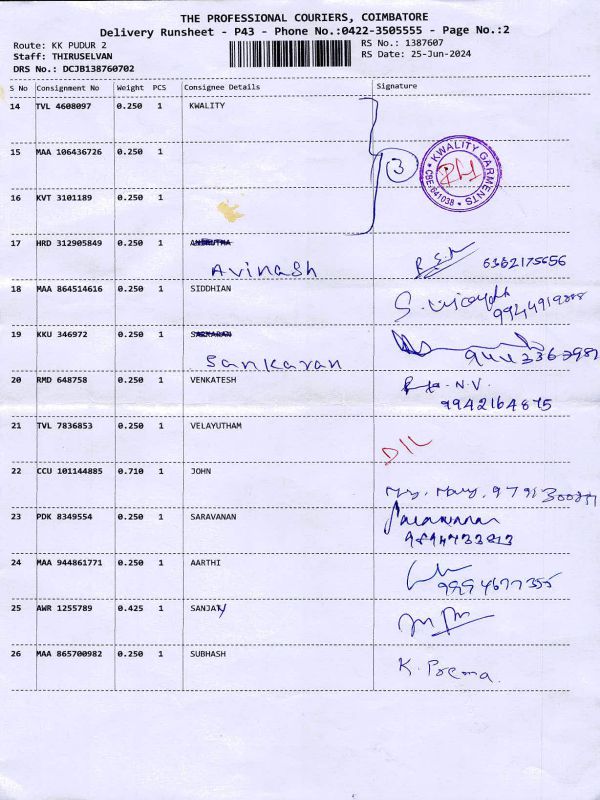 THE PROFESSIONAL COURIERS, COIMBATORE
Delivery Runsheet - P43 - Phone No.:0422-3505555 - Page No.:2
Route: KK PUDUR 2
RS No.: 1387607
Staff: THIRUSELVAN
RS Date: 25-Jun-2024
DRS No.: DCJB138760702
S No Consignment No Weight PCS Consignee Details Signature
14 TVL 4608097 0.250 1 KWALITY
15 MAA 106436726 0.250 1
3
KWALITY GARMENTS
CBE-641038
16 KVT 3101189 0.250 1
17 HRD 312905849 0.250 1
Avinash 6362175656
18 MAA 864514616 0.250 1 SIDDHIAN
19 KKU 346972 0.250 1
Sankaran
20 RMD 648758 0.250 1 VENKATESH
9942164875
21 TVL 7836853 0.250 1 VELAYUTHAM
22 CCU 101144885 0.710 1 JOHN
23 PDK 8349554 0.250 1 SARAVANAN
Saravanan
9894733813
24 MAA 944861771 0.250 1 AARTHI
9994677355
25 AWR 1255789 0.425 1 SANJAY
26 MAA 865700982 0.250 1 SUBHASH
K. Prema.